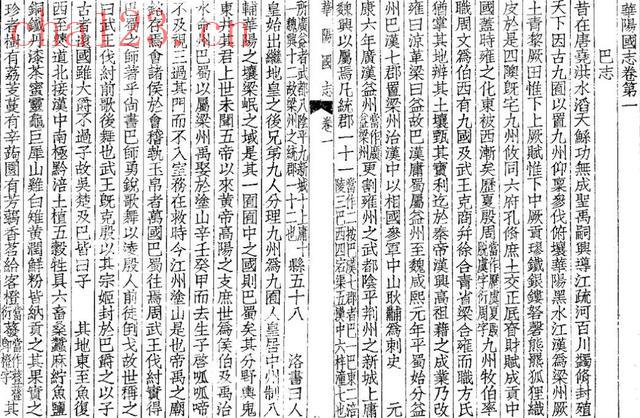 華陽國志卷第一
巴志
昔在唐堯洪水滔天鯀功無成聖禹嗣興導江疏河百川蠲修封殖
天下因古九囿以置九州仰稟參伐俯壤華陽黑水江漢爲梁州厥
土青黎厥田惟下上厥賦惟下中厥貢璆鐵銀鏤砮磬熊羆狐貍織
皮於是四隩旣宅九州攸同六府孔修庶土交正厎眘財賦成貢中
國蓋時雍之化東被西漸矣歷夏殷周九州牧伯率
職周文爲伯西有九國及武王克商并徐合青省梁合雍而職方氏
猶掌其地辨其土壤甄其寶利迄於秦帝漢興高祖藉之成業乃改
雍曰涼革梁曰益故巴漢庸蜀屬益州至魏咸熙元年平蜀始分益
州巴漢七郡置梁州治漢中以相國參軍中山耿黼爲刺史 元
康六年廣漢益州更割雍州之武都陰平荆州之新城上庸
魏興以屬焉凡統郡一十一
華陽國志 卷一
縣五十八 洛書曰人
皇始出繼地皇之後兄弟九人分理九州爲九囿人皇居中州制八
輔華陽之壤梁岷之域是其一囿囿中之國則巴蜀矣其分野輿鬼
東井其君上世未聞五帝以來黃帝高陽之支庶世爲侯伯及禹治
水命州巴蜀以屬梁州禹娶於塗山辛壬癸甲而去生子啓呱呱啼
不及視三過其門而不入室務在救時今江州塗山是也帝禹之廟
銘存焉會諸侯於會稽執玉帛者萬國巴蜀往焉周武王伐紂實得
巴蜀之師著乎尚書巴師勇銳歌舞以凌殷人前徒倒戈故世稱之
曰武王伐紂前歌後舞也武王旣克殷以其宗姬封於巴爵之以子
古者遠國雖大爵不過子故吳楚及巴皆曰子 其地東至魚復
西至僰道北接漢中南極黔涪土植五穀牲具六畜桑蠶麻紵魚鹽
銅鐵丹漆茶蜜靈龜巨犀山雞白雉黃潤鮮粉皆納貢之其果實之
珍者樹有荔芰蔓有辛蒟園有芳蒻香茗給客橙